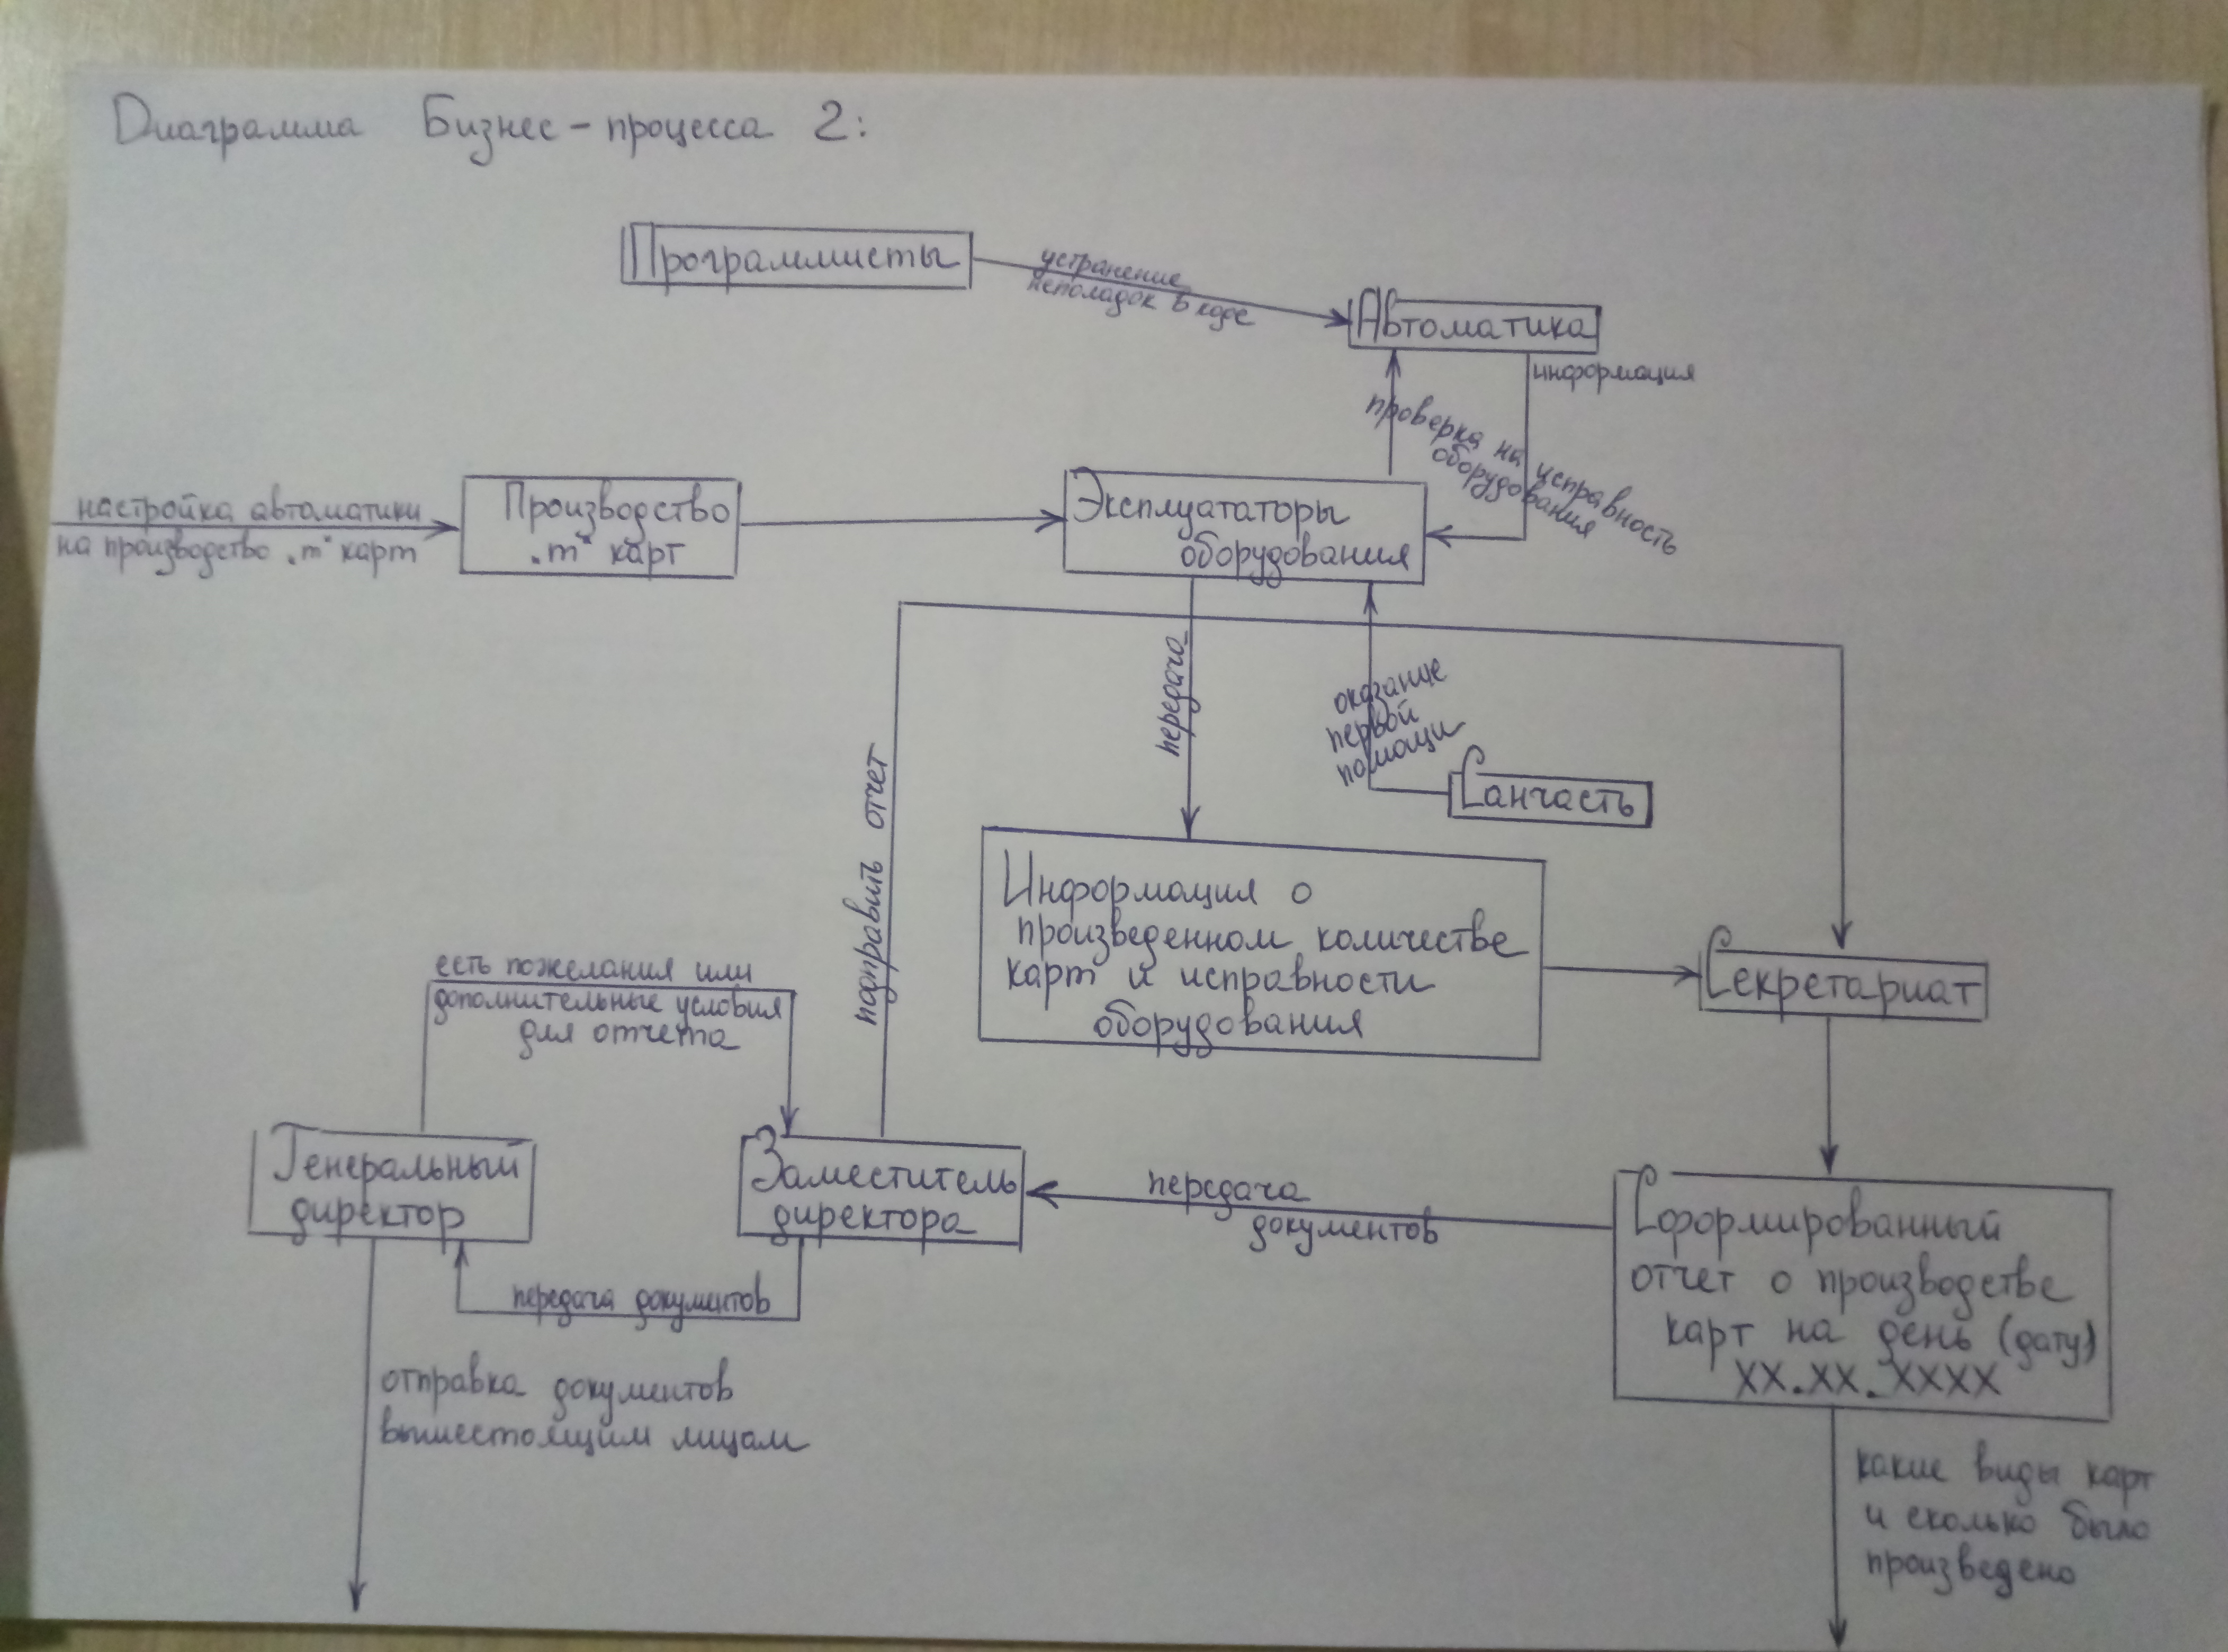 Диаграмма Бизнес-процесса 2:
Программисты
устранение
неполадок в коде
Автоматика
информация
проверка на исправность
оборудования
настройка автоматики
на производство "т" карт
Производство
"т" карт
Эксплуататоры
оборудования
передача
оказание
первой
помощи
Санчасть
подправить отчет
Информация о
произведенном количестве
карт и исправности
оборудования
Секретариат
есть пожелания или
дополнительные условия
для отчета
Генеральный
директор
Заместитель
директора
передача
документов
передача документов
Сформированный
отчет о производстве
карт на день (дату)
XX.XX.XXXX
отправка документов
вышестоящим лицам
какие виды карт
и сколько было
произведено